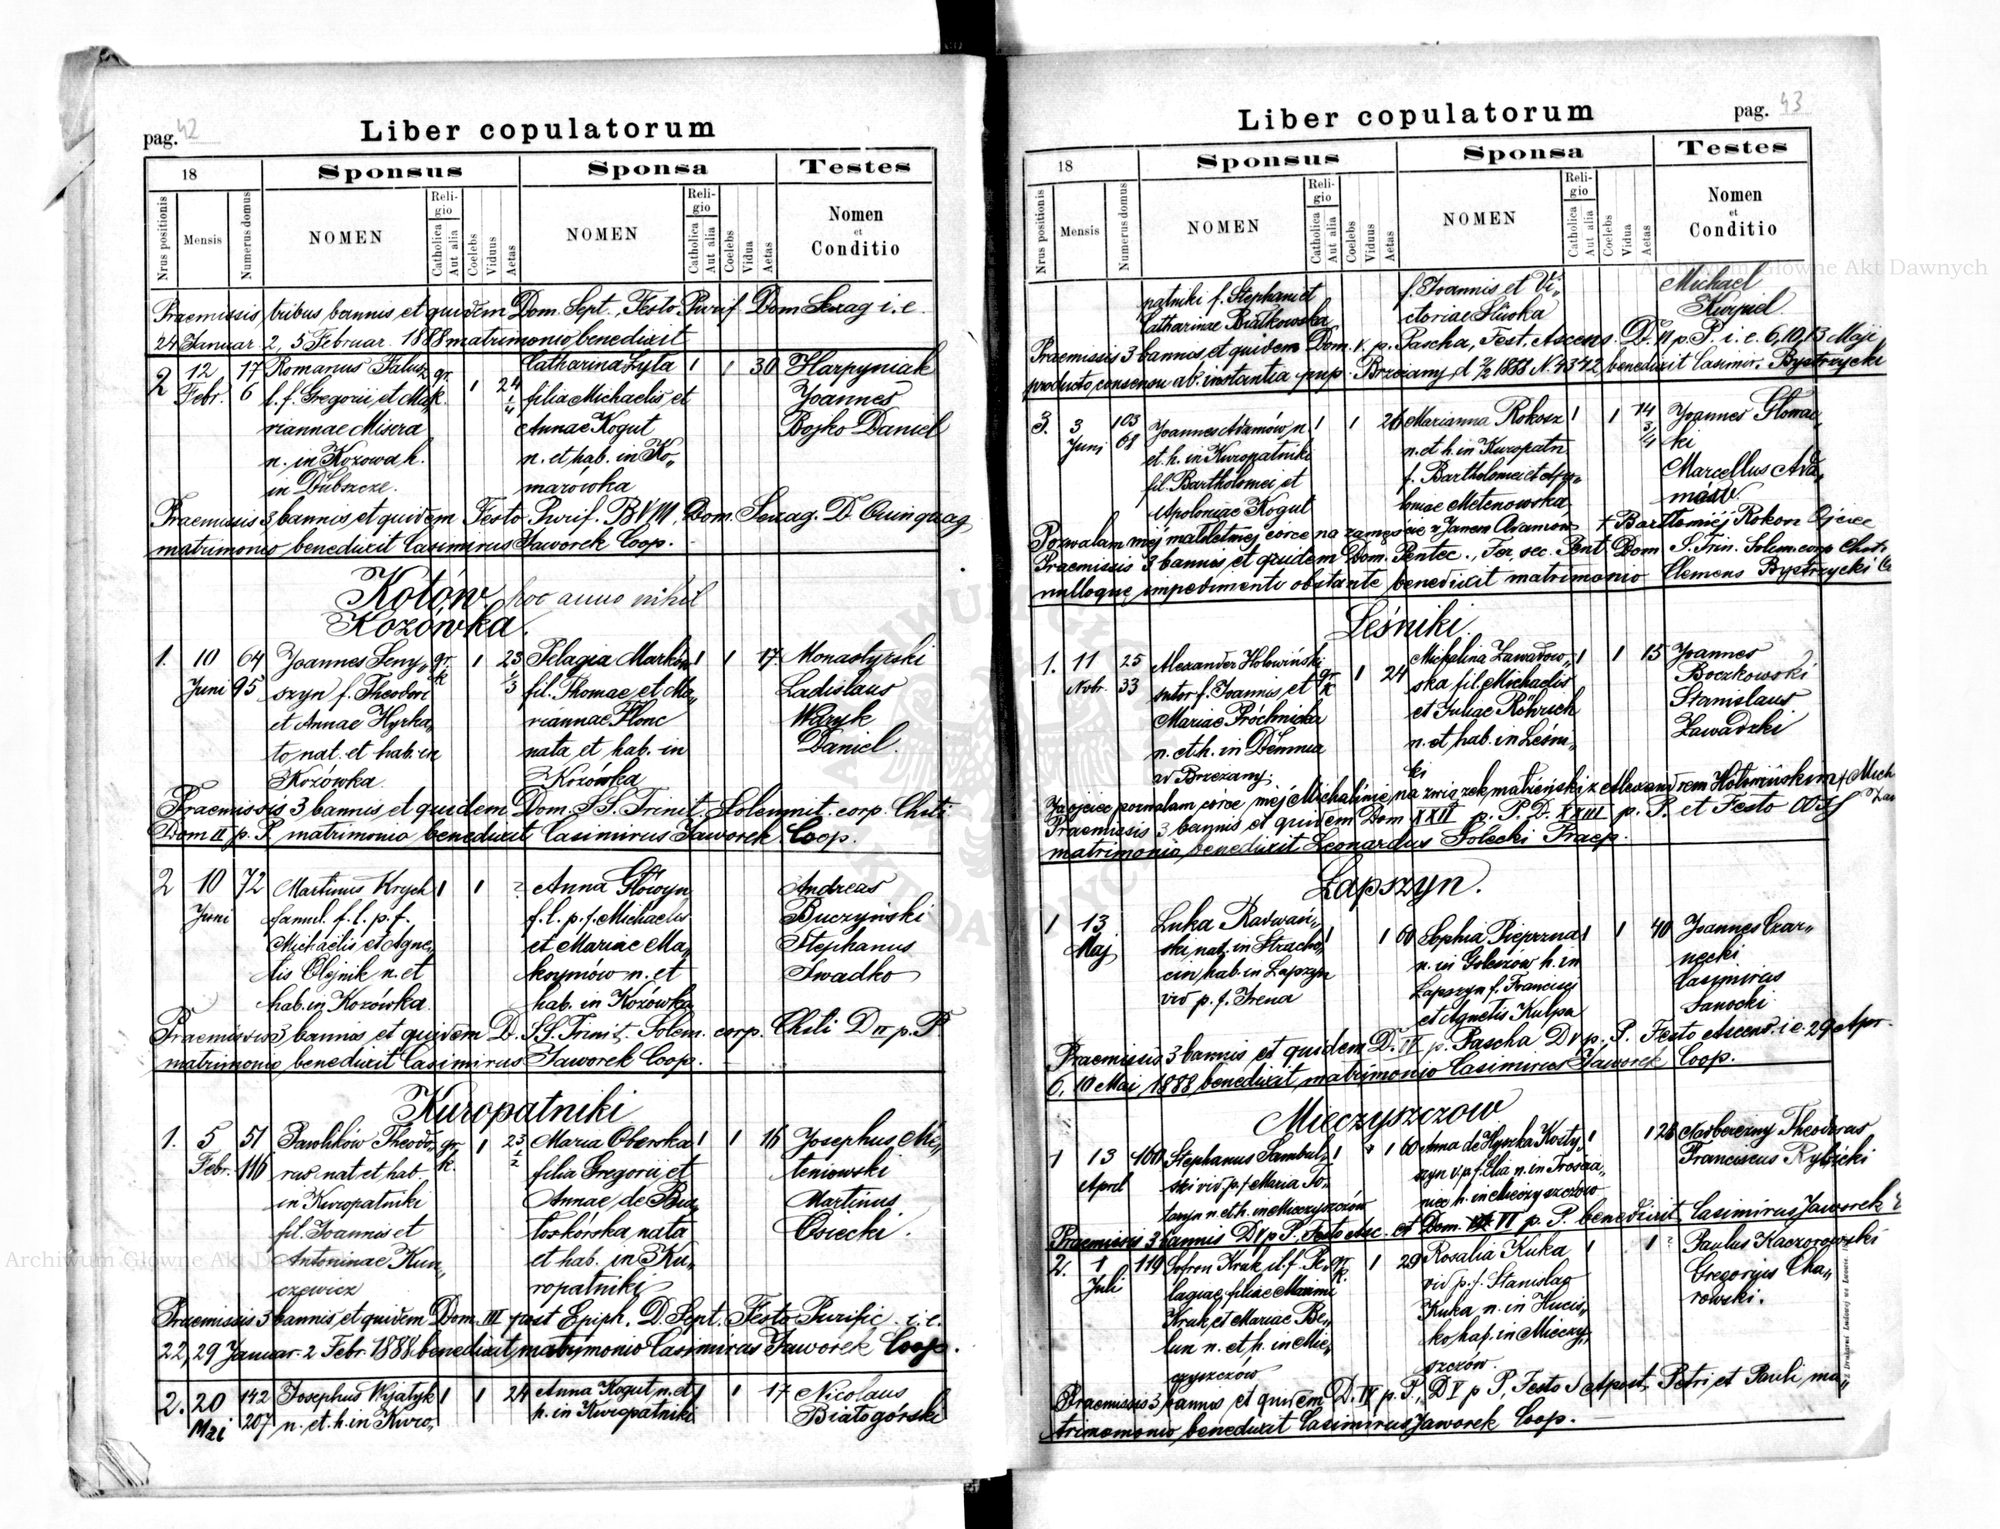 pag. 42
Liber copulatorum
18
Sponsus
Sponsa
Testes
Nrus positionis
Mensis
Numerus domus
NOMEN
Religio
Catholica
Aut alia
Coelebs
Viduus
Aetas
NOMEN
Religio
Catholica
Aut alia
Coelebs
Vidua
Aetas
Nomen
et
Conditio
Praemissis tribus bannis et quidem Dom. Sept., Festo Purif. Dom Sexag i. e.
24 Januar. 2, 5 Februar. 1888 matrimonio benedixit
2 12 Febr. 17 6
Romanus Falusz gr. k. 1 24 1/4
f. f. Gregorii et Ma-
riannae Misera
n. in Kozowa h.
in Dubszcze.
Catharina Łyta 1 1 30
filia Michaelis et
Annae Kogut
n. et hab. in Ko„
marowka
Harpyniak
Joannes
Bojko Daniel
Praemissis 3 bannis et quidem Festo Purif. BVM, Dom. Sexag. D. Quinquag
matrimonio benedixit Casimirus Jaworek Coop.
Kotów hoc anno nihil
Kozówka.
1. 10 Juni 64 95
Joannes Seny„ gr. k 1 23 1/3
szyn f. Theodori
et Annae Hyrka„
to nat. et hab. in
Kozówka
Pelagia Marków 1 1 17
fil. Thomae et Ma„
riannae Flonc
nata et hab. in
Kozówka
Monastyrski
Ladislaus
Wazyk
Daniel.
Praemissis 3 bannis et quidem Dom. S. S. Trinit. Solemnit. corp. Chti.
Dom II p. P. matrimonio benedixit Casimirus Jaworek Coop.
2 10 Juni 72
Martinus Krych 1 1 ?
famul. f. l. p. f.
Michaelis et Agne„
tis Olejnik n. et
hab. in Kozówka.
Anna Głowyn
f. l. p. f. Michaelis
et Mariae Ma„
ksymów n. et
hab. in Kozówka
Andreas
Buczyński
Stephanus
Swadko
Praemissis 3 bannis et quidem D. S.S. Trinit. Solem. corp. Chti D II p. P
matrimonio benedixit Casimirus Jaworek Coop.
Kuropatniki
1. 5 Febr. 51 116
Pawlików Theodo„ gr. k. 1 23 1/2
rus nat et hab.
in Kuropatniki
fil. Joannis et
Antoninae Kun„
czewicz
Maria Oberska 1 1 16
filia Gregorii et
Annae de Bia„
łoskórska nata
et hab. in Ku„
ropatniki
Josephus Me„
teniowski
Martinus
Osiecki.
Praemissis 3 bannis et quidem Dom. III post Epiph. D. Sept. Festo Purific. i. e.
22, 29 Januar. 2 Febr. 1888 benedixit matrimonio Casimirus Jaworek Coop.
2. 20 Mai 142 207
Josephus Wyatyk 1 1 24
n. et. h. in Kuro„
Anna Kogut n. et 1 1 17
h. in Kuropatniki
Nicolaus
Białogórski
pag. 43
Liber copulatorum
18
Sponsus
Sponsa
Testes
Nrus positionis
Mensis
Numerus domus
NOMEN
Religio
Catholica
Aut alia
Coelebs
Viduus
Aetas
NOMEN
Religio
Catholica
Aut alia
Coelebs
Vidua
Aetas
Nomen
et
Conditio
patniki f. Stephani et
Catharinae Białkowska
f. Joannis et Vi„
ctoriae Śliska
Michael
Kurpiel
Praemissis 3 bannis et quidem Dom. V. p. Pascha, Fest. Ascens. D. VI p. P. i. e. 6, 10, 13 Maji
producto consensu ab. instantia pup. Brzeżany d 7/2 1888 N. 4342 benedixit Casimir. Bystrzycki
3. 3 Juni 103 68
Joannes Adamów n. 1 1 26
et. h. in Kuropatniki
fil. Bartholomei et
Apoloniae Kogut
Marianna Rokosz 1 1 14 3/4
n. et h. in Kuropatn
f. Bartholomei et Apo„
loniae Metenowska
Joannes Głowac„
ki
Marcellus Ada„
mów.
Pozwalam mej małoletniej córce na zamęście z Janem Adamów + Bartłomiej Rokosz Ojciec
Praemissis 3 bannis et quidem Dom. Pentec., Fer. sec. Pent Dom. S. Trin. Solem. corp. Chsti
nulloque impedimento obstante benedixit matrimonio Clemens Bystrzycki
Leśniki.
1. 11 Nvbr. 25 33
Alexander Hołowiński gr. k 1 24
sutor f. Joannis et
Mariae Próchnicka
n. et h. in Demnia
ad Brzeżany.
Michalina Zawadow„ 1 1 15
ska fil. Michaelis
et Juliae Röhrich
n. et hab. in Leśni„
ki
Joannes
Boczkowski
Stanislaus
Zawadzki
Ja ojciec pozwalam córce mej Michalinie na związek małżeński z Alexandrem Hołowińskim + Mich
Praemissis 3 bannis et quidem Dom XXII p. P. D. XXIII p. P. et Festo
matrimonio benedixit Leonardus Solecki Praep.
Łapszyn.
1 13 Maj
Luka Radwań„ 1 1 60
ski nat. in Stracho„
cin, hab. in Łapszyn
vid p. f. Irena
Sophia Pieprzna 1 1 40
n. in Goleszow h. in
Łapszyn f. Francisci
et Agnetis Kulpa
Joannes Czar„
necki
Casimirus
Sanocki
Praemissis 3 bannis et quidem D. IV p. Pascha D V p. P. Festo Ascens. i. e. 29 Apr.
6, 10 Mai 1888 benedixit matrimonio Casimirus Jaworek Coop.
Mieczyszczow
1 13 April 160
Stephanus Sambul„ 1 1 60
ski vid. p. f Maria To„
karyn n. et h. in Mieczyszczów
Anna de Hyrcka Kosty„ 1 1 26
szyn v. p. f. Elia n. in Trościa„
niec h. in Mieczyszczow
Nadbereżny Theodorus
Franciscus Rybicki
Praemissis 3 bannis D V p P. Festo Asc. et Dom. VI p. P. benedixit Casimirus Jaworek
2. 1 Juli 119
Sofron Kruk il. f. Pe„ gr. k. 1 29
lagiae filiae Maximi
Kruk et Mariae Be„
lun n. et h. in Mie„
czyszczów
Rosalia Kuka 1 1 ?
vid p. f. Stanislaa
Kuka n. in Hucis„
ko hab. in Mieczy„
szczów.
Paulus Kaczorowski
Gregorius Cha„
rowski.
Praemissis 3 bannis et quidem D. IV p. P., D V p P., Festo S Apost. Petri et Pauli ma„
trimonio benedixit Casimirus Jaworek Coop.
Z Drukarni Ludowej we Lwowie
Archiwum Główne Akt Dawnych
Archiwum Główne Akt Dawnych